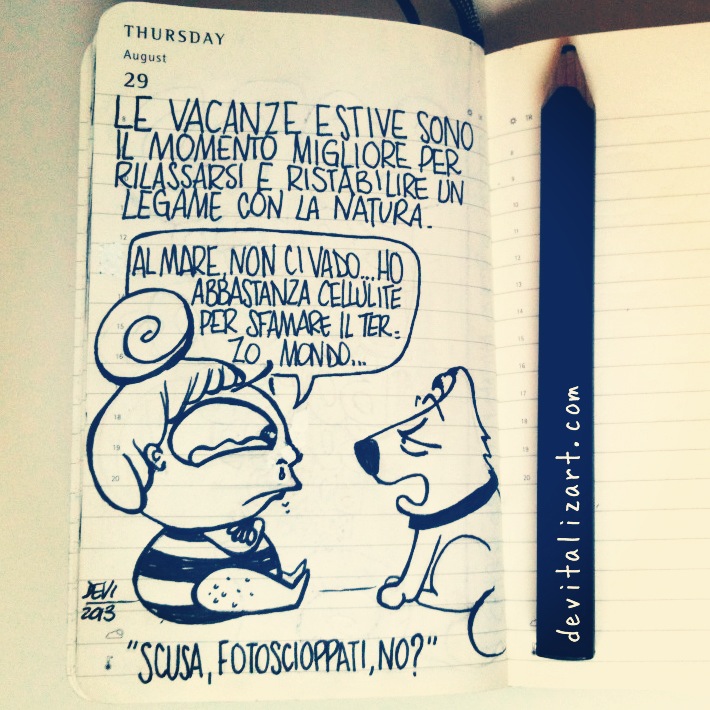 THURSDAY
August
29
LE VACANZE ESTIVE SONO
IL MOMENTO MIGLIORE PER
RILASSARSI E RISTABILIRE UN
LEGAME CON LA NATURA.
AL MARE, NON CI VADO...HO
ABBASTANZA CELLULITE
PER SFAMARE IL TER=
ZO MONDO...
DEVI
2013
"SCUSA, FOTOSCIOPPATI, NO?"
devitalizart.com